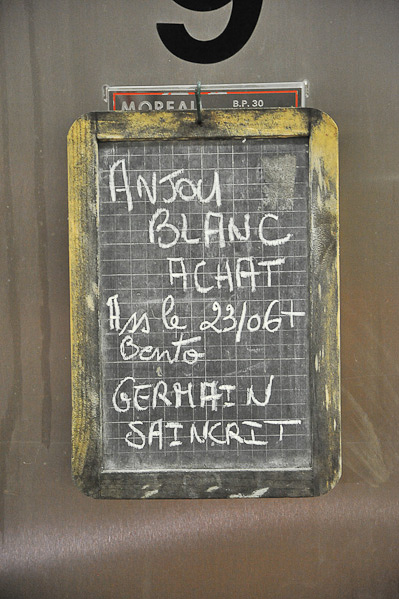 9
MOREAU B.P. 30
ANJOU
BLANC
ACHAT
Ass le 23/06+
Bento
GERMAIN
SAINCRIT